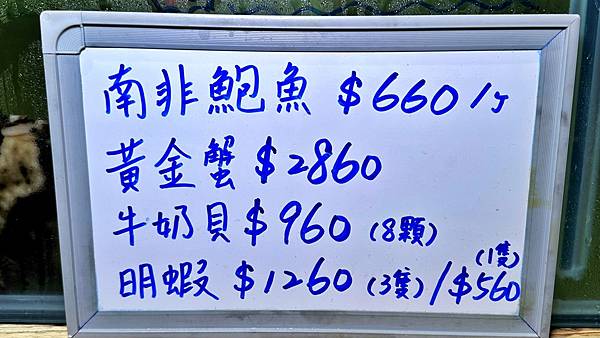 南非鮑魚 $660/
黃金蟹 $2860
牛奶貝 $960 (8顆)
明蝦 $1260 (3隻) / $560 (1隻)